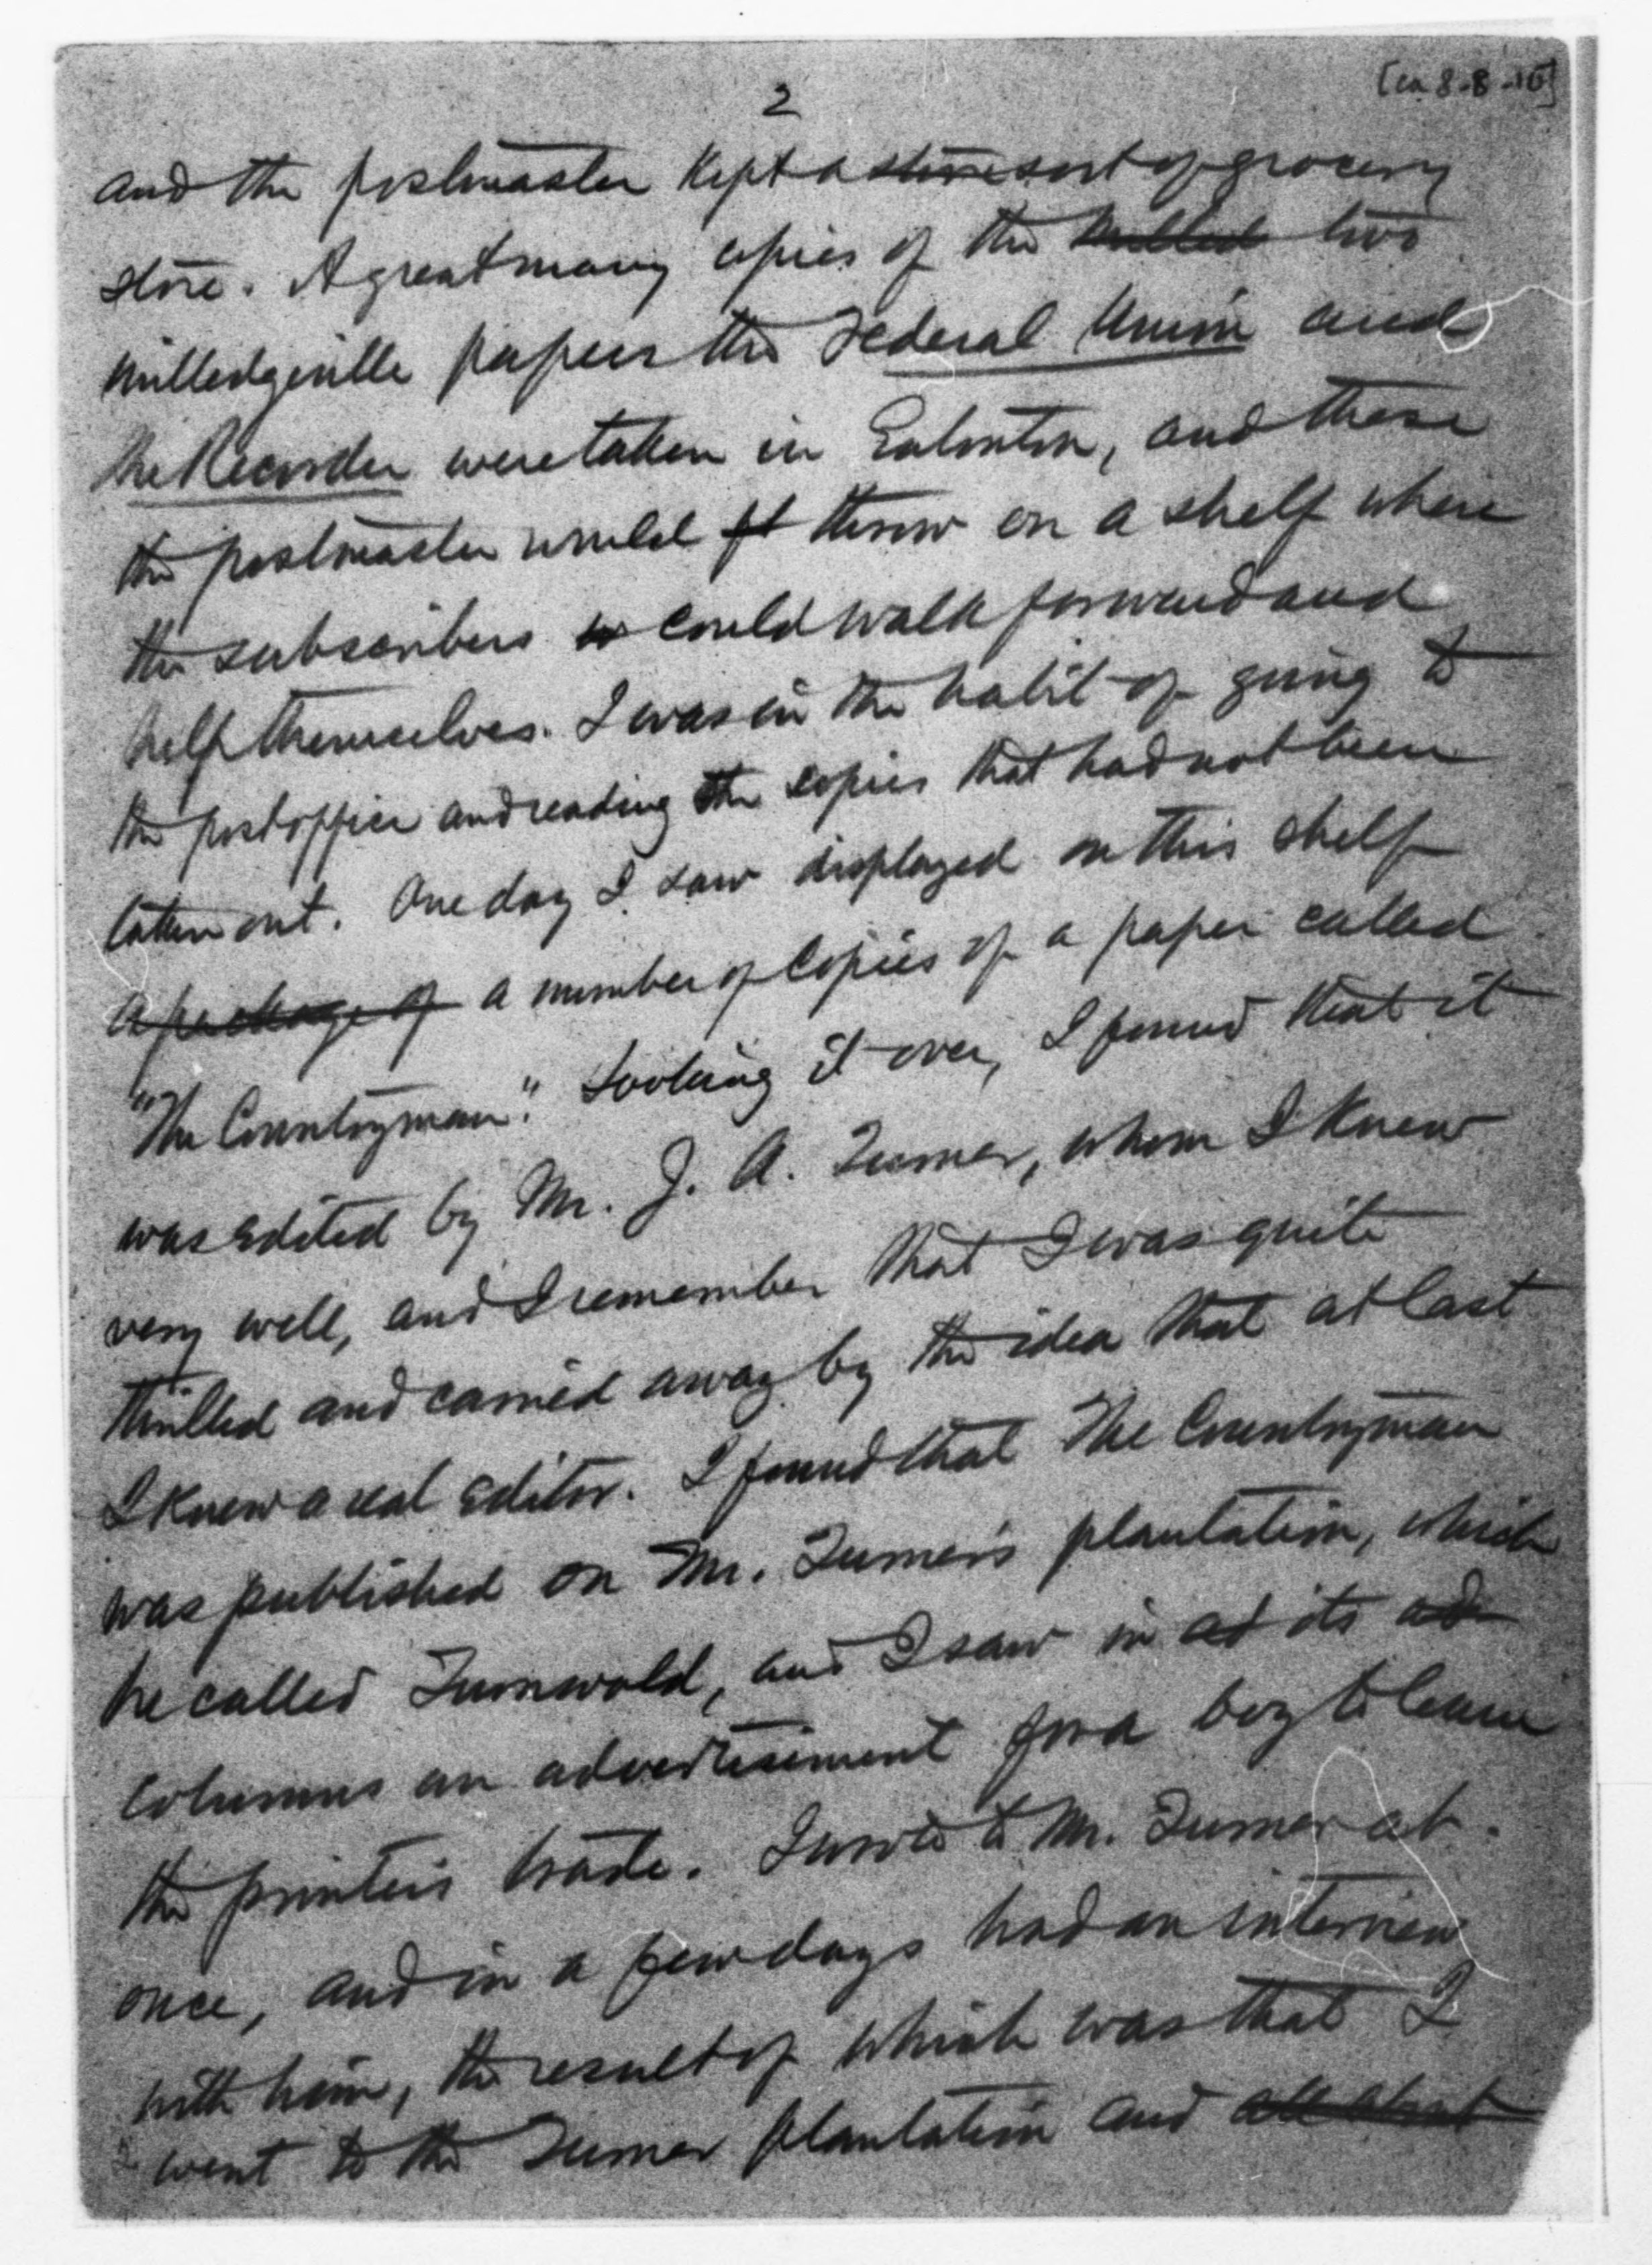 2
[ca 8-8-16]
and the postmaster kept a store sort of grocery
store. A great many copies of the Milled two
Milledgeville papers the Federal Union and
the Recorder were taken in Eatonton, and these
the postmaster would ft throw on a shelf where
the subscribers w could walk forward and
help themselves. I was in the habit of going to
the postoffice and reading the copies that had not been
taken out. One day I saw displayed on this shelf
a package of a number of copies of a paper called
"The Countryman." Looking it over, I found that it
was edited by Mr. J. A. Turner, whom I knew
very well, and I remember that I was quite
thrilled and carried away by the idea that at last
I knew a real editor. I found that The Countryman
was published on Mr. Turner's plantation, which
he called Turnwold, and I saw in ad its ad
columns an advertisement for a boy to learn
the printer's trade. I wrote to Mr. Turner at
once, and in a few days had an interview
with him, the result of which was that I
went to the Turner plantation and all about